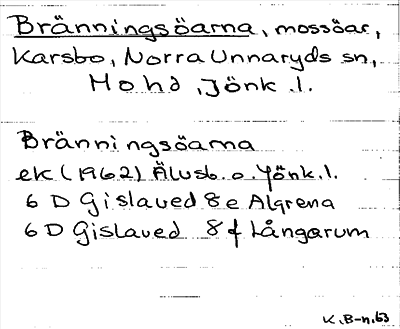 Bränningsöarna, mossöar,
Karsbo, Norra Unnaryds sn,
Mo hd, Jönk. l.
Bränningsöarna
ek (1962) Älvsb. o. Jönk. l.
6 D Gislaved 8 e Algrena
6 D Gislaved 8 f Långarum
K. B-n. 63